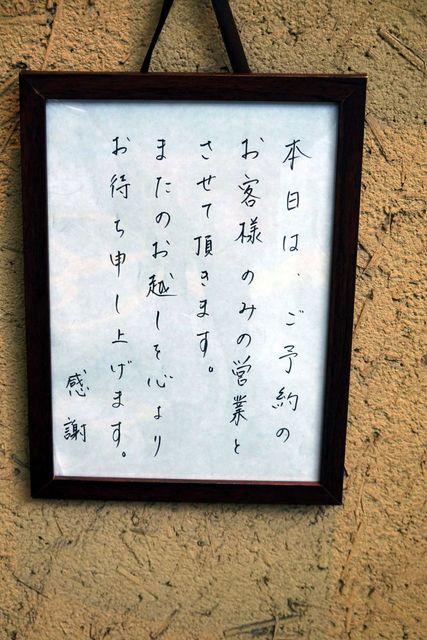 本日は、ご予約の
お客様のみの営業と
させて頂きます。
またのお越しを心より
お待ち申し上げます。
感謝